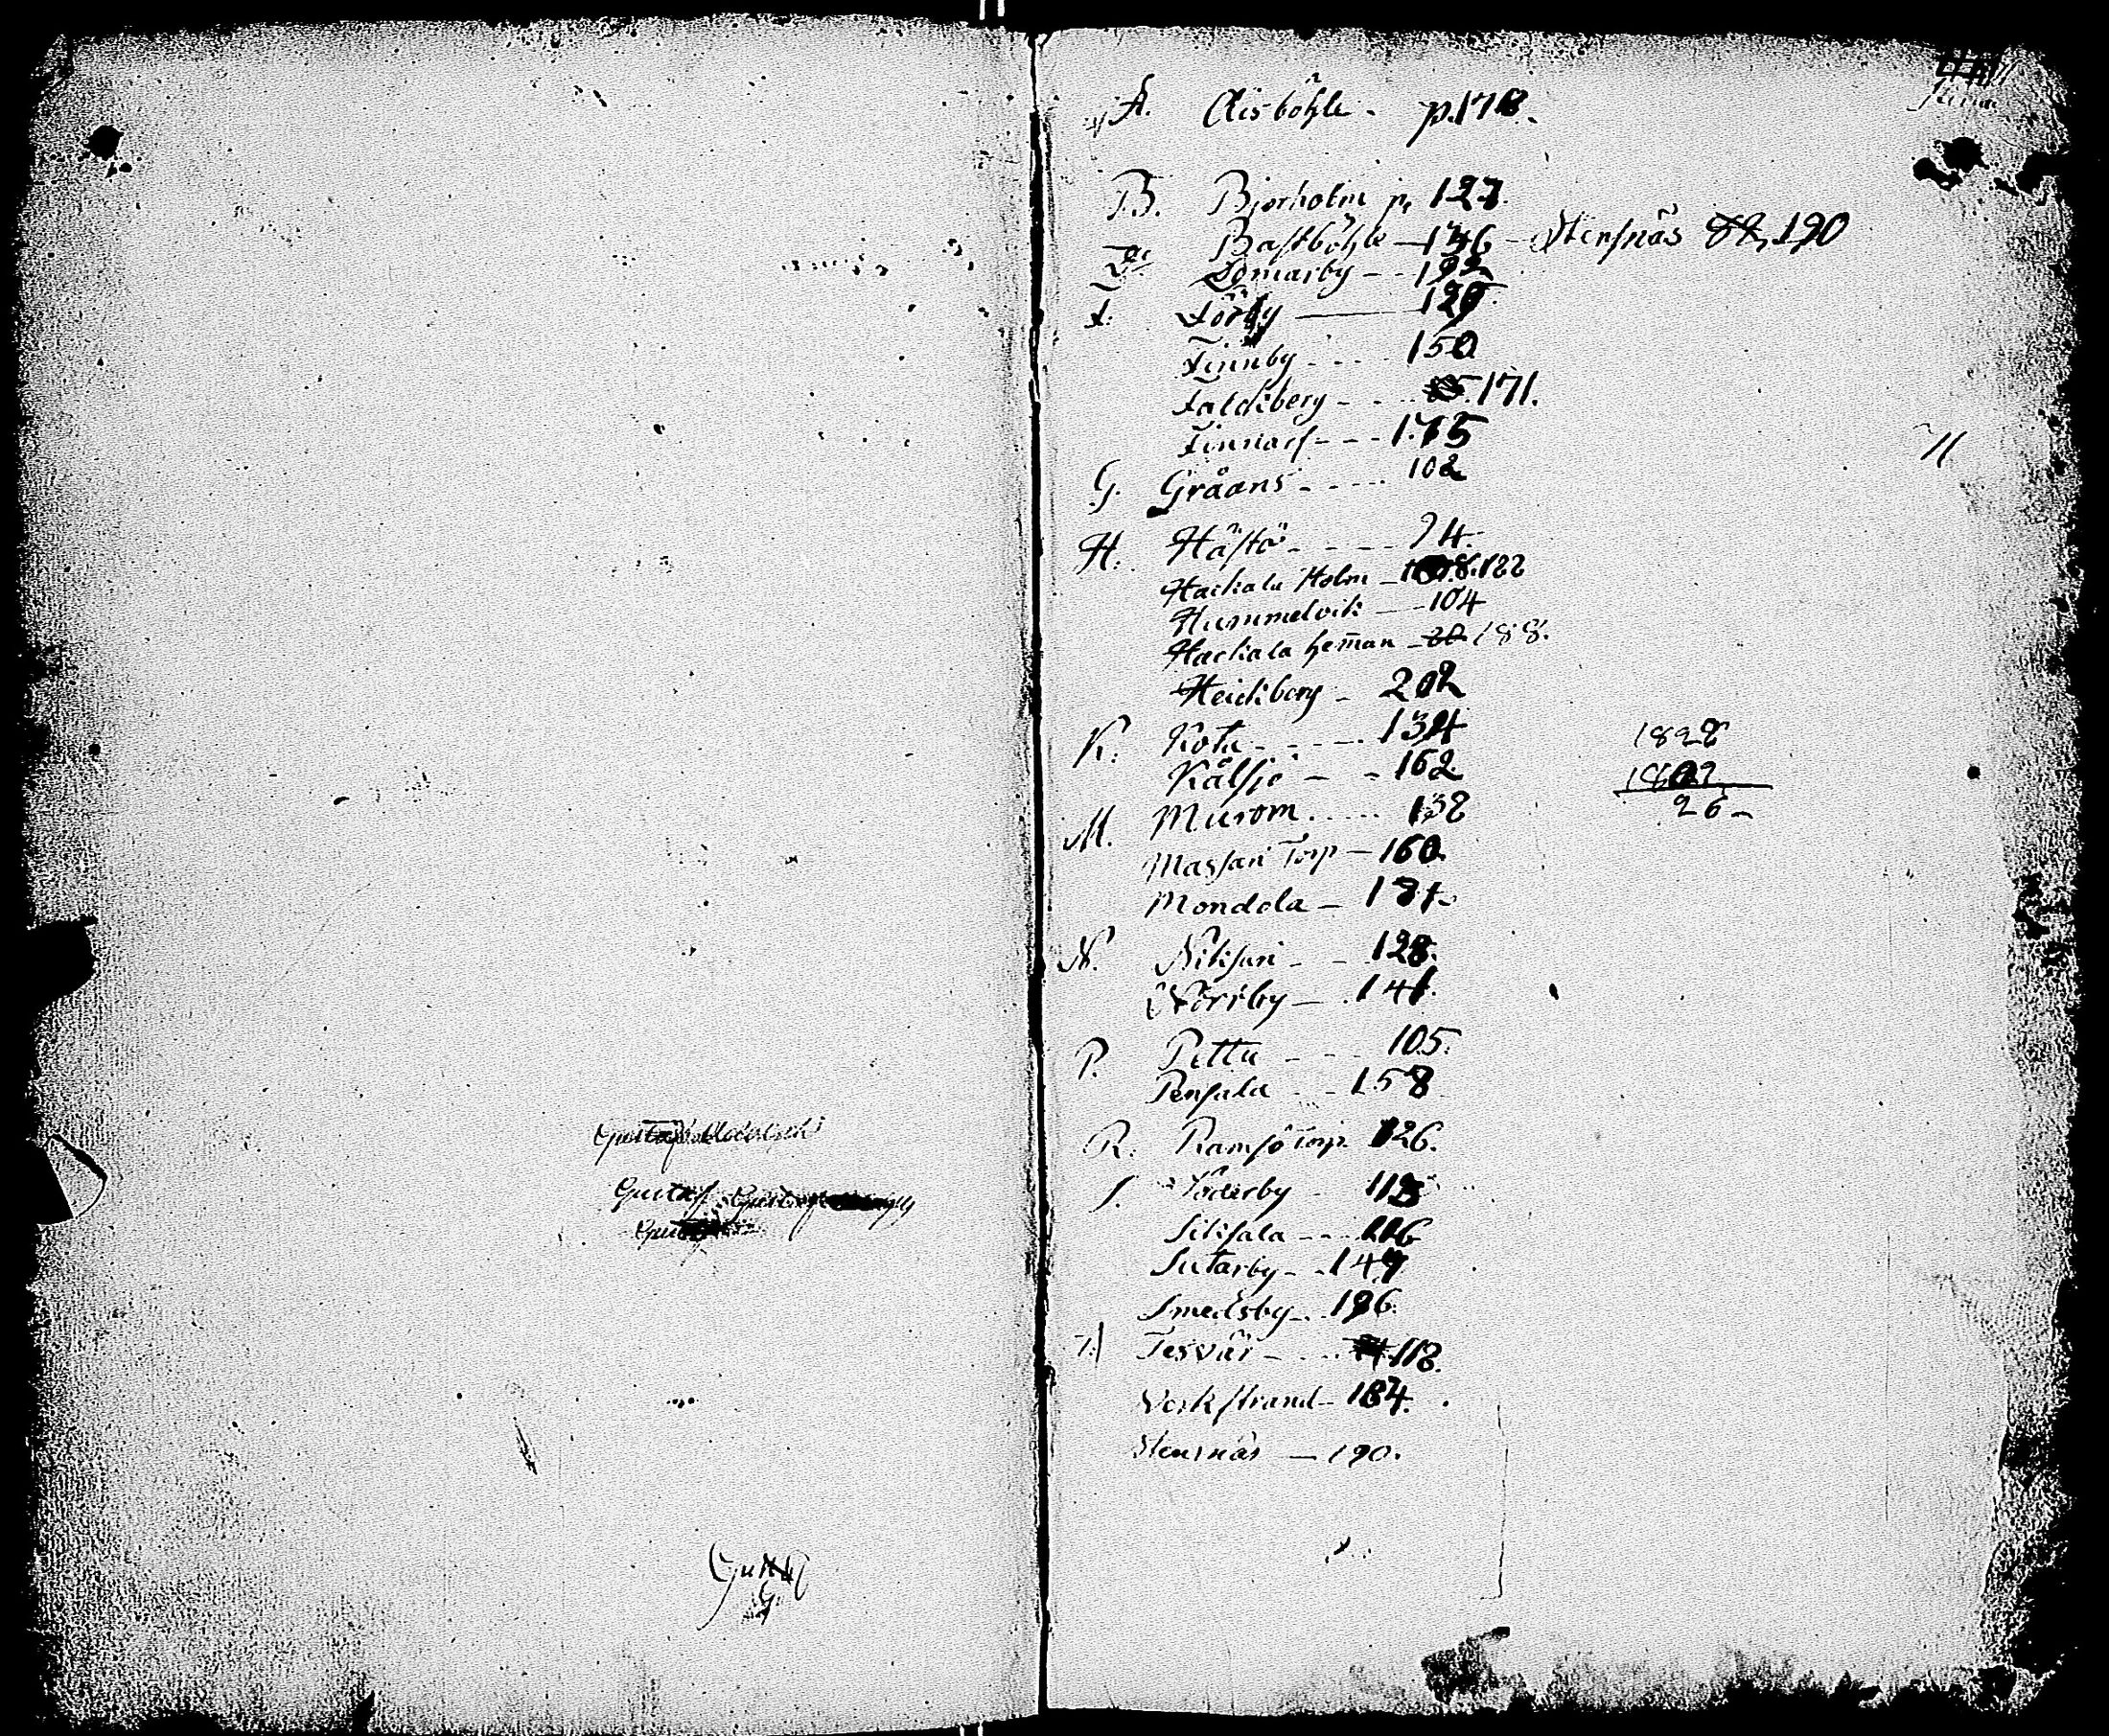 Gustaf
Gustaf
Gustaf
A. Aisböhle - p. 178.
B. Bjorholm p. 127.
Bastböhle — 146 - Stensnäs 190
Domarby - - 192
F. Förby — 120
Finnby - - - - 150
Faldsberg - - - - 171.
Finnarf - - - 175
G. Gråans - - - - - 102
H. Hästö - - - - - 94.
Hackala Holm — 188
Hummelvik — 104
Hackala heman — 20 188.
Heidiberg - 202
K. Kota - - - - - 134
Kålsjö — - 162
M. Murom . . . . . 138
Massan Torp — 160.
Mondola —
N. Nikisari - - 128.
Norrby — 141.
P. Pettu - - - - 105.
Pensala - - - 158
R. Ramsö Torp. 126.
S. Söderby - 113
Silisala - - - 116
Sutarby - - 149
Smedsby - - 196.
T. Tesvär - - - - 118.
Verkstrand - 184.
Stensnäs — 190.
1828
1802
26 -